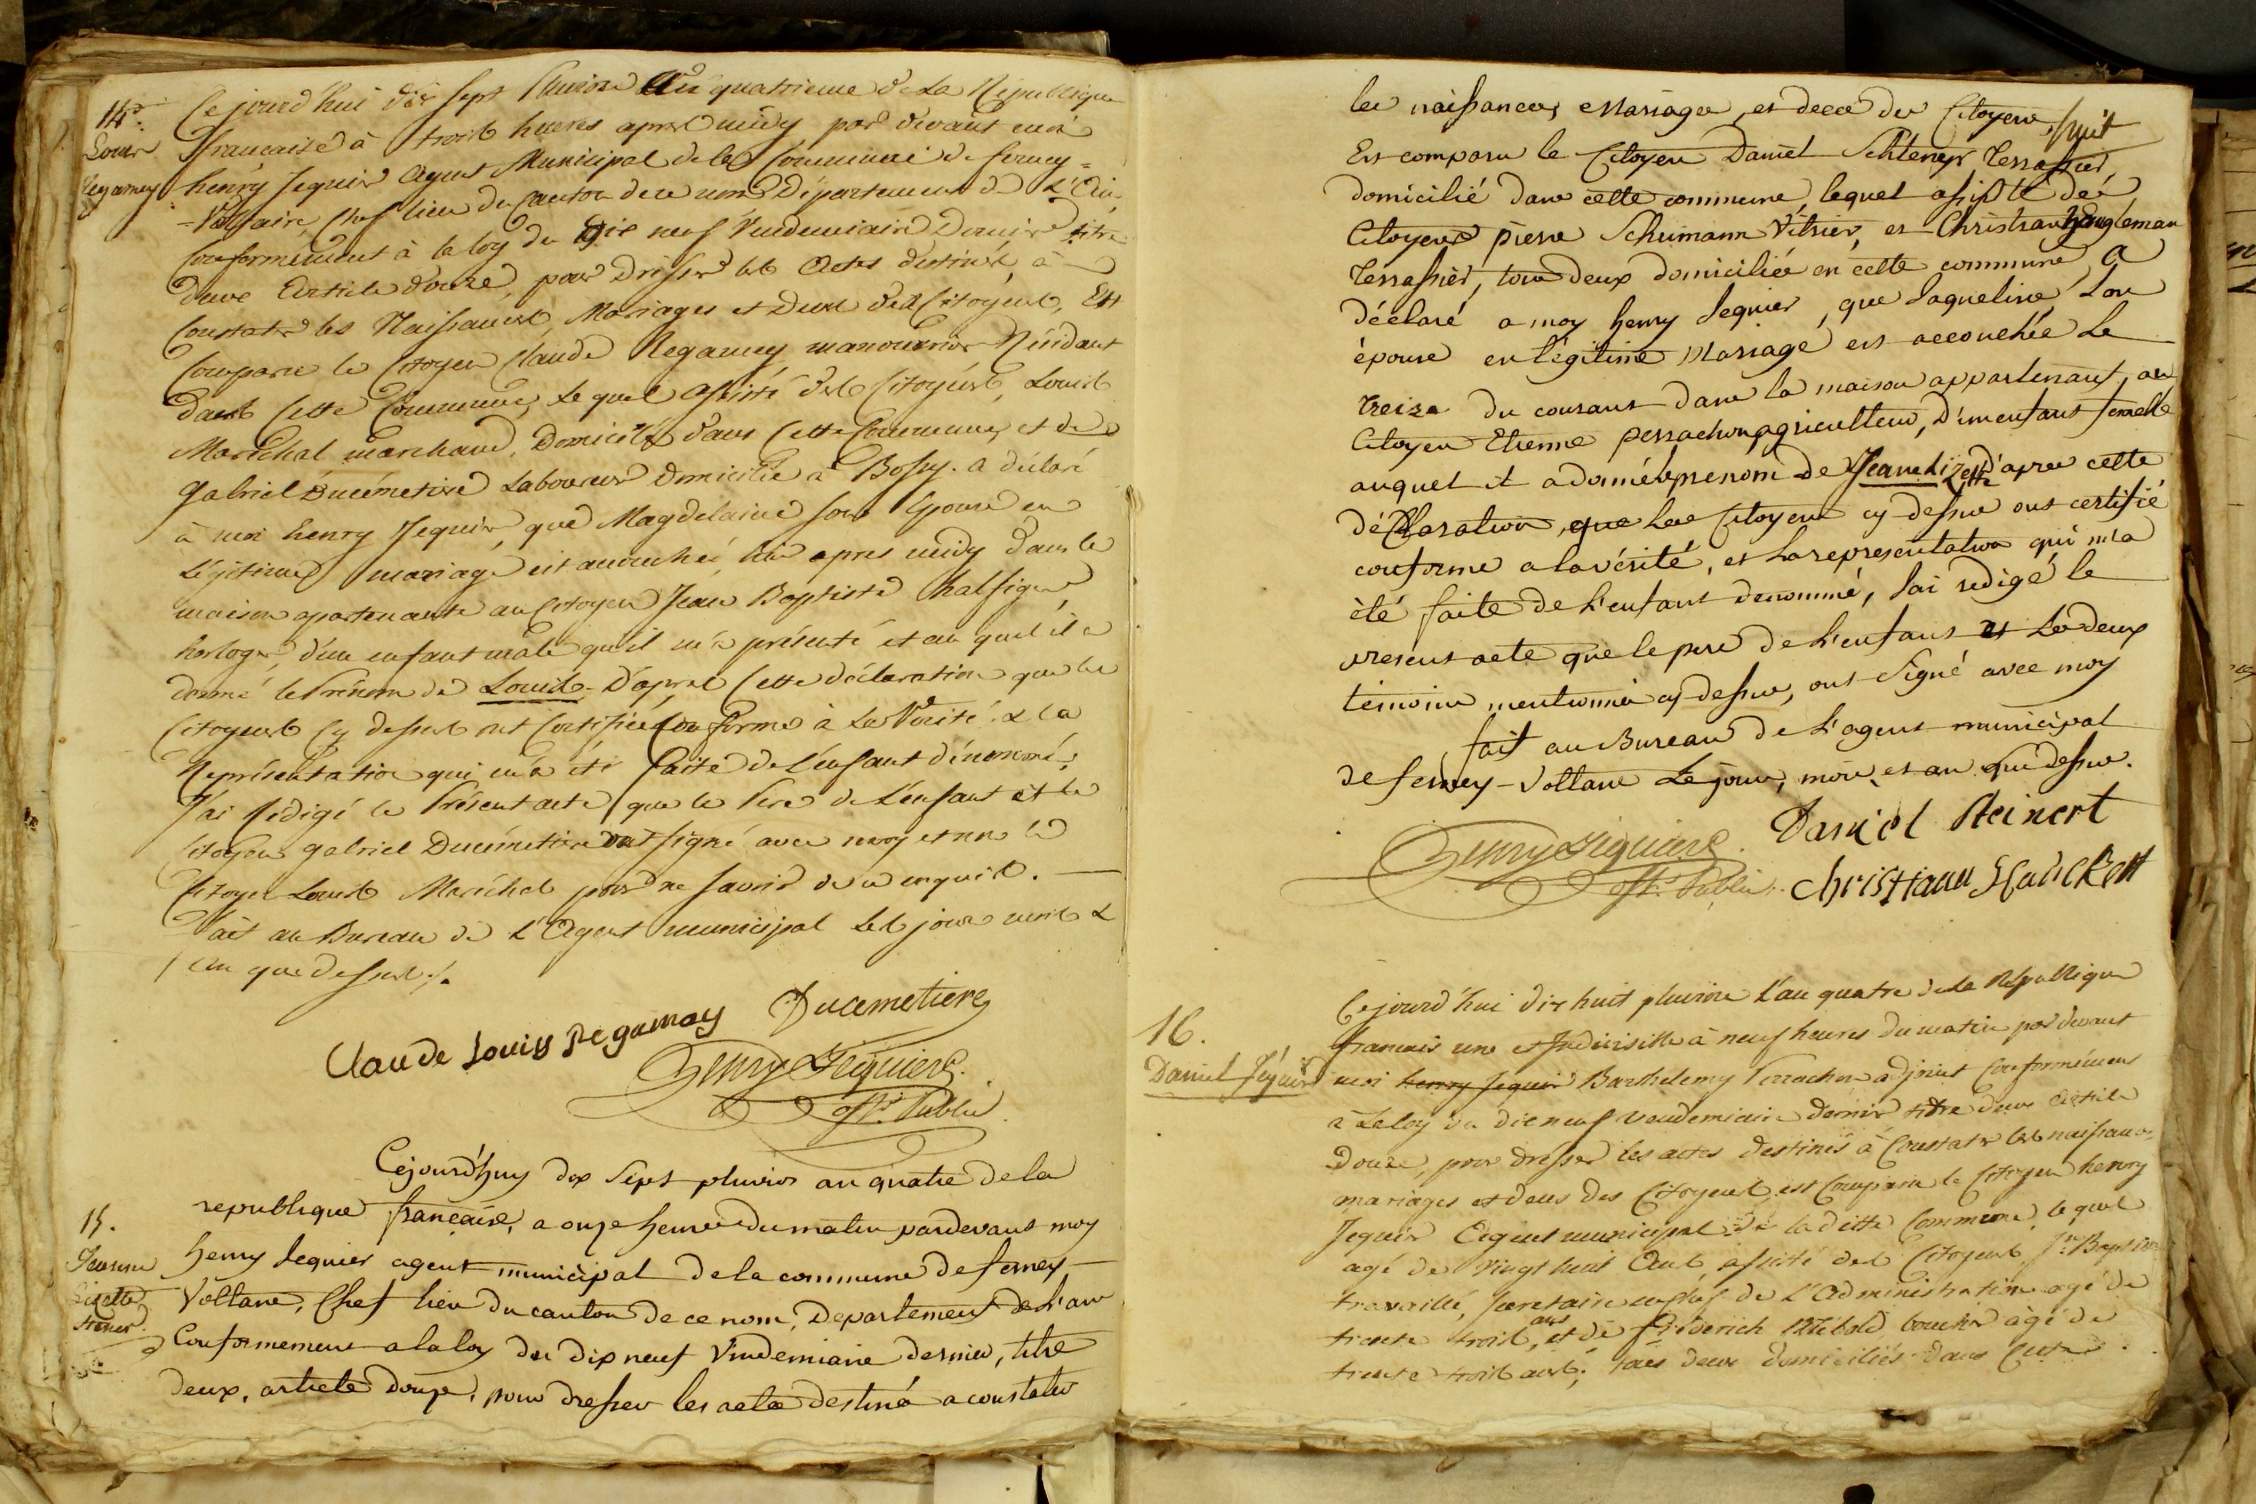 14e.
Louis
Regamey
Ce jourd'hui dix sept Pluviose An quatrieme de La République
francaise à trois heures apres midy par devant moi
henry Jequier Agent Municipal de la Commune de ferney=
=Voltaire, Chef lieu du Canton de ce nom Département de L'Ain,
Conformément à la loy du dix neuf Vendemiaire Dernier titre
deux Article douze, pour Dresser les Actes destinés à
Constater les Naissances, Mariages et Deces des Citoyens, Est
Comparu le Citoyen Claude Regamey manouvrier Résidant
dans Cette Commune, le quel Assisté des Citoyens, Louis
Maréchal marchand, Domicilié dans Cette Commune, et de
Gabriel Ducémetiere Laboureur Domicilié à Bossy. a déclaré
à moi henry Jequier, que Magdelaine son Epouse en
Légitime mariage est accouchée, hier apres midy dans la
maison apartenante au Citoyen Jean Baptiste
horloger, d'un enfant male qu'il m'a présenté et au quel il a
donné le Prénom de Louis. D'après Cette déclaration que les
Citoyens Cy dessus ont Certifiée Conforme à La Vérité. & la
Représentation qui m'a été faite de L'enfant dénommé,
J'ai Rédigé le Présent acte que le Pere de L'enfant et le
Citoyen Gabriel Ducémetiere ont signé avec moy et non le
Citoyen Louis Maréchal pour ne savoir de ce enquis.
Fait au Bureau de L'Agent municipal Les jour mois &
an que dessus ./.
Claude Louis Regamay Ducemetiere
Henry Jéquier.
Off. Public
15.
Jeanne
Lisette
Ce jourd'huy dix Sept pluviose an quatre de la
republique française, a onze heures du matin pardevant moy
henry Jequier agent municipal de la commune de ferney
Voltaire, Chef lieu du canton de ce nom, Departement de l'ain
Conformement a la loy du dix neuf Vendemiaire dernier, titre
deux, article douze, pour dresser les actes destinés a constater
les naissances, Mariages, et deces des Citoyens, suit
Est comparu le Citoyen Daniel Terrassier,
domicilié dans cette commune, lequel assisté des
Citoyens pierre Schumann Vitrier, et Christian
Terrassier, tous deux domiciliés en cette commune, a
déclaré a moy henry Jequier, que Jaqueline Son
épouse en légitime Mariage est accouchée Le
treize du courant dans la maison appartenant, au
Citoyen Etienne perrachon agriculteur, D'un enfant femelle
auquel il a donné le prenom de Jeane Lizette d'apres cette
déclaration, que les Citoyens cy dessus ont certifié
conforme a la vérité, et La representation qui m'a
été faite de L'enfant denommé, J'ai redigé le
present acte que le pere de L'enfant et Les deux
témoins mentionné cy dessus, ont Signé avec moy
fait au Bureau de L'agent municipal
de ferney-Voltaire Le jour, mois et an que dessus.
Henry Jéquier. Daniel Steinert
Off. Public. Christiaan
16.
Daniel Jéquier
Ce jourd'hui dix huit pluviose L'an quatre de la République
francais une et Indivisible à neuf heures du matin par devant
moi henry Jequier Barthelemy Perrachon adjoint Conformément
à La loy du dix neuf vendemiaire dernier titre deux article
Douze, pour dresser les actes destinés à Constater les naissances
mariages et deces des Citoyens est Comparu le Citoyen henry
Jequier Agent municipal de la ditte Commune, le quel
agé de Vingt huit Ans assisté des Citoyens, Jn Baptiste
travaillé, secretaire en chef de L'Administration agé de
trente trois ans, et de frederich boucher agé de
trente trois ans; tous deux domiciliés dans Cette